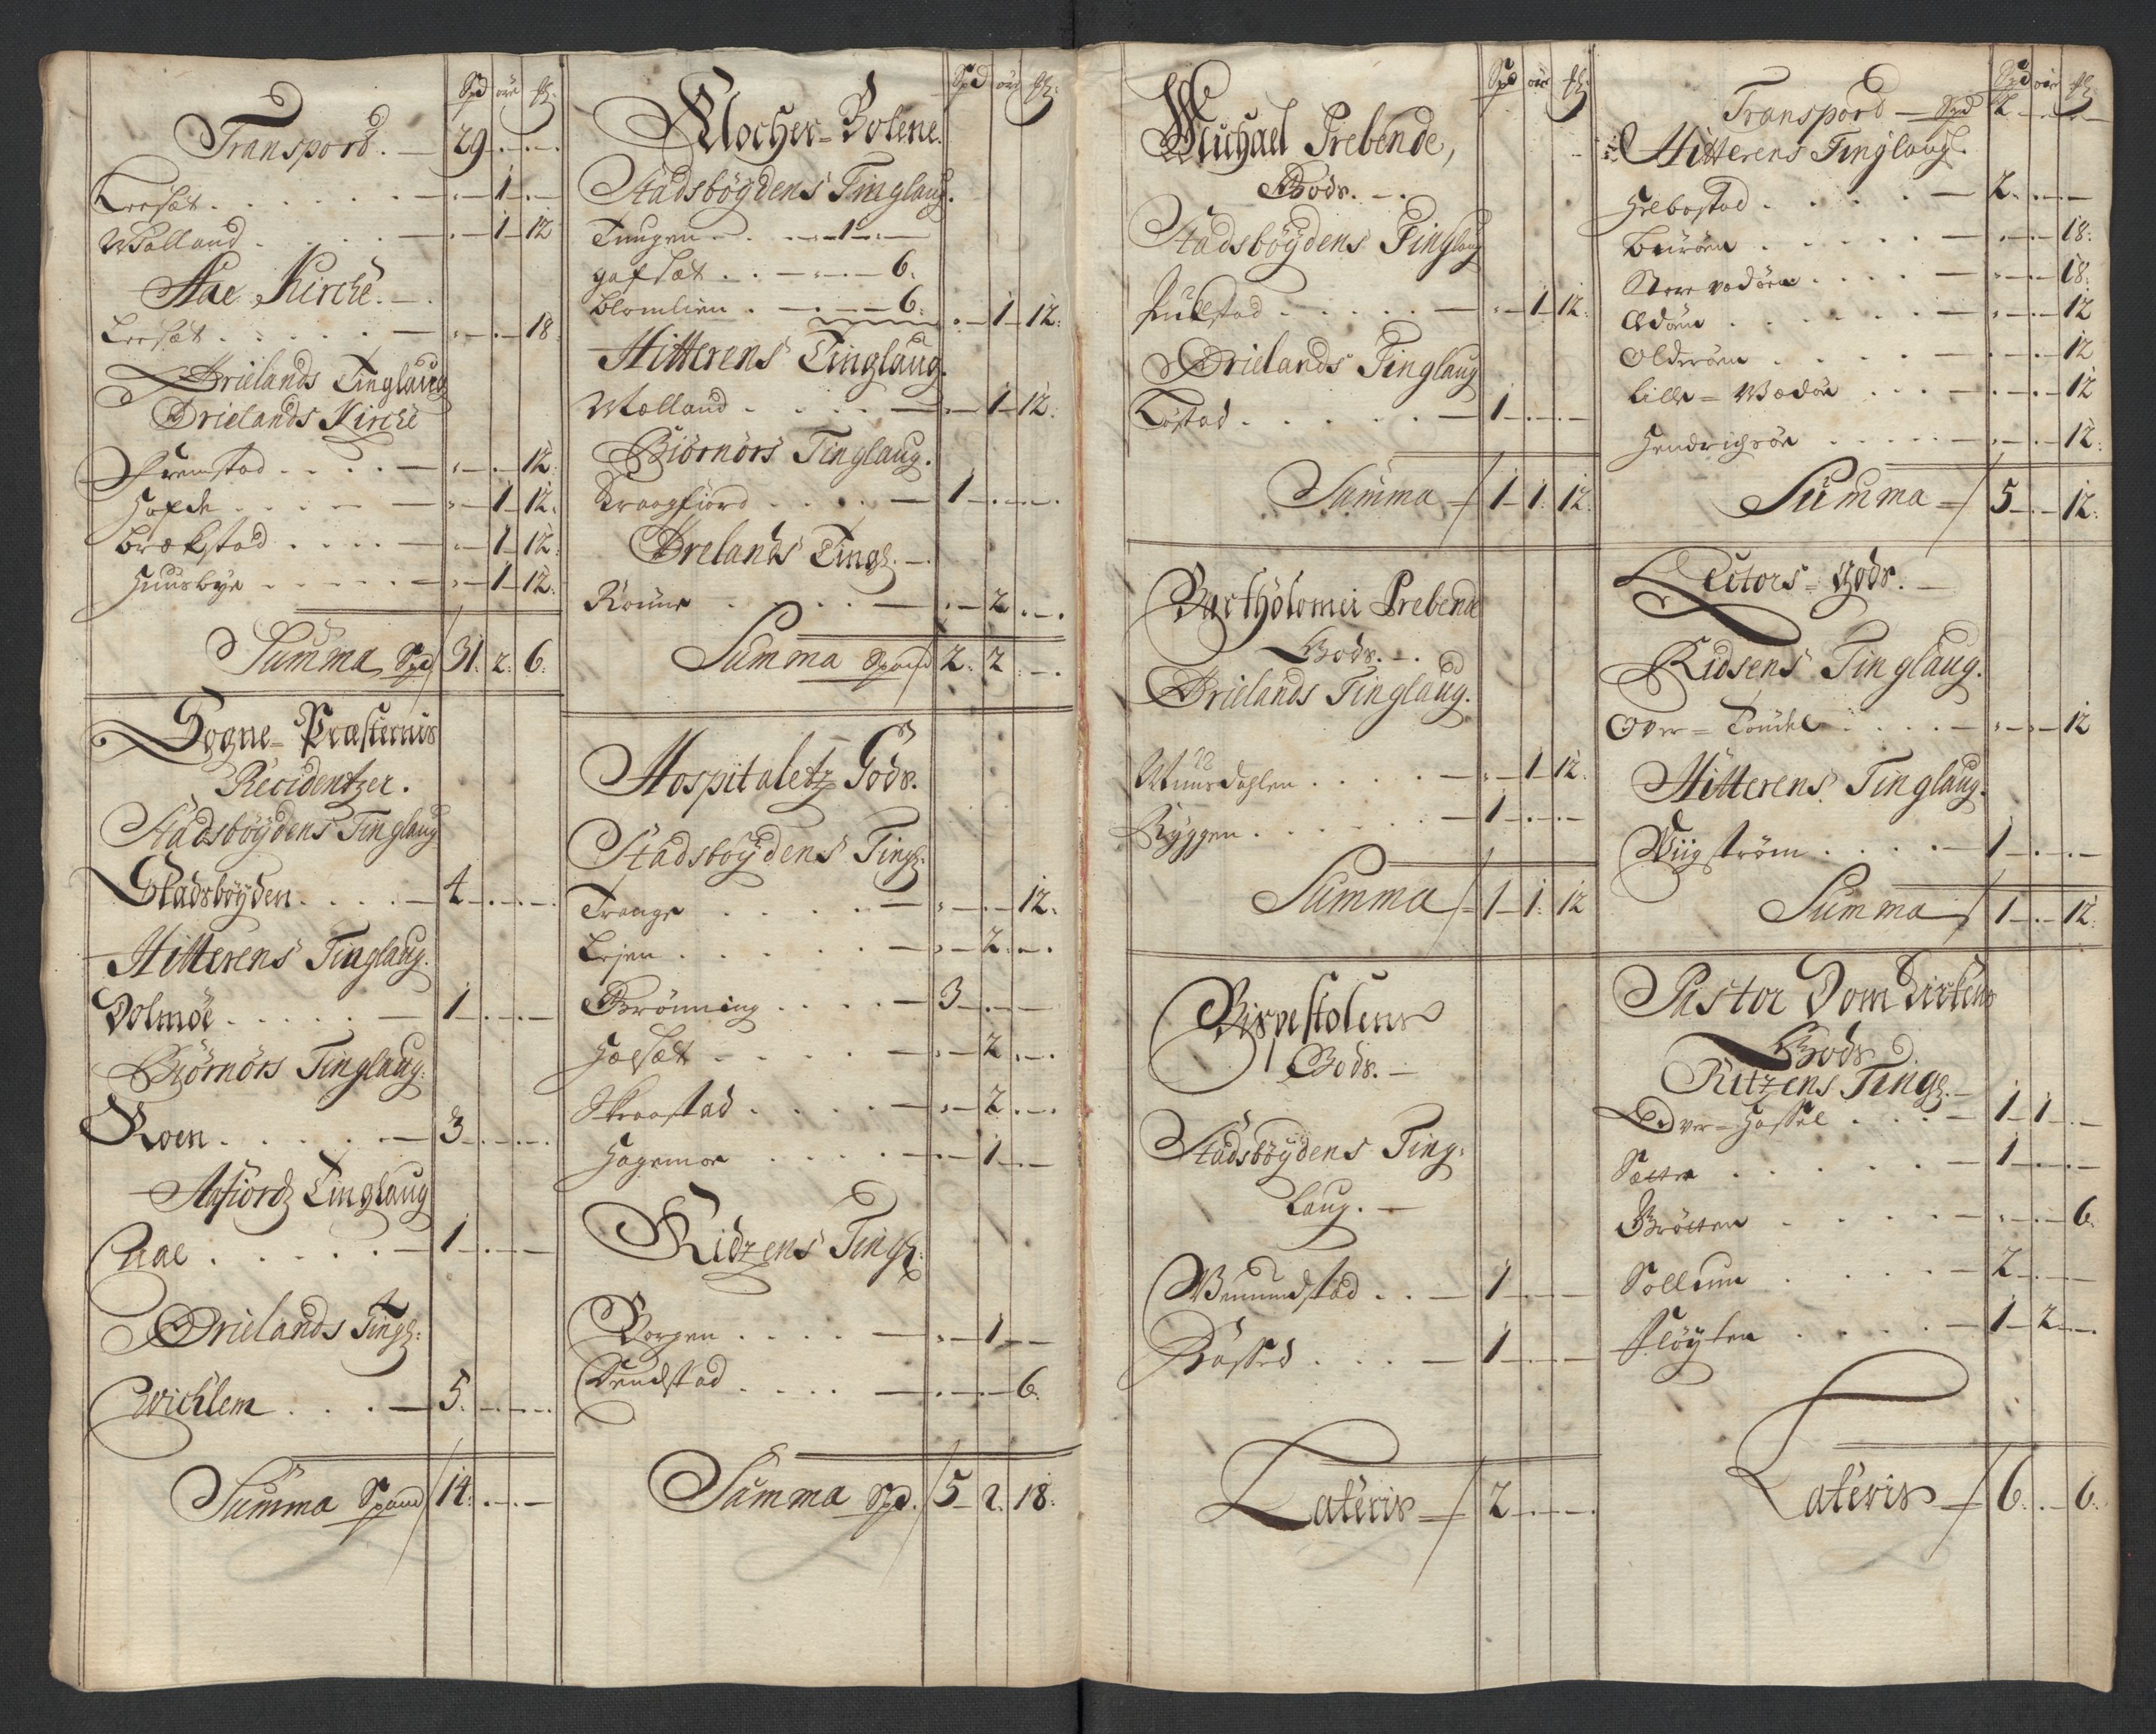 Spd øre
Transpord. — 29 — . — . —
Leesæt . . . . . — " — 1 — . —
Wolland . . . . — " — 1 — 12
Aae Kirche. —
Leesæt . . . . . — " — . — 18
Ørielands Tinglaug
Ørielands Kirche
Fremstad . . . . — " — . — 12.
Hofde . . . . — " — 1 — 12.
Brækstad . . . . — " — 1 — 12.
Huusbye . . . . . — " — 1 — 12.
Summa Spd 31. 2. 6.
Sogne-Præsternis
Recidentzer.
Stadsbøydens Tinglaug
Stadsbøyden . . . . — 4 — . — . —
Hitterens Tinglaug.
Dolmøe . . . . . — 1 — . — . —
Biørnørs Tinglaug.
Roen . . . . . — 3 — . — . —
Aafiordz Tinglaug
Aae . . . . . — 1 — . — . —
Ørielands Tingl:
Wichlem . . . — 5. — . — . —
Summa Spand 14. — . — . —
Spd øre
Klocher-Bolene.
Stadsbøydens Tinglaug.
Tungen . . . — 1 — . —
Gafsæt . . — . — . — 6.
Blomlien . — . — . — 6. " — 1 — 12.
Hitterens Tinglaug.
Wolland . . . . . — " — 1 — 12.
Biørnørs Tinglaug.
Kraagfiord . . . . — 1 — . — . —
Ørelands Tingl. —
Rønne . . . . . — " — 2 — . — .
Summa Spand 2. 2 — . —
Hospitaletz Gods.
Stadsbøydens Tingl.
Traage . . . . — " — . — 12.
Leien . . . . . . — " — 2. — . —
Grønning . . . . — 3 — . — . —
Hafsæt . . . . . — " — 2. — . —
Skraastad . . . . — " — 2. — . —
Hagemoe . . . . — " — 1 — . —
Ridzens Tingl:
Borgen . . . . — " — 1 — . —
Sundstad . . . . — . — . — 6.
Summa Spd. 5 — 2. 18.
Spd øre
Michael Prebende,
Gods. — .
Stadsbøydens Tinglaug
Fulstad . . . . . — " — 1 — 12.
Ørielands Tinglaug
Tøstad . . . . . — 1 — . — . —
Summa — 1 — 1. 12.
Bartholomei Prebende
Gods. — .
Ørielands Tinglaug.
Muusdahlen . . . . — " — 1 12.
Ryggen . . . . . — 1 — . — . —
Summa — 1 — 1. 12
Bispestolens
Gods. —
Stadsbøydens Ting-
Laug. —
Wemundstad . . — 1 — . — . —
Røssed . . . — 1 — . — . —
Lateris — 2 — . — . —
Spd øre
Transpord — Spd 2 — . — . —
Hitterens Tinglaug.
Helbostad . . . . — 2. — . — . —
Burøen . . . . . — " — . — 18.
Store Vedøen . . . . — " — . — 18.
Edøen . . . . . — " — . — 12
Olderøen . . . . — . — . — 12
Lille-Wedøe . . . — . — . — 12
Hendrichsøe . . . . — " — . — 12.
Summa — 5 — . — 12.
Lectors-Gods. —
Ridsens Tinglaug.
Over-Tondel . . . . — " — " — 12
Hitterens Tinglaug.
Wiigstrøm . . . . — 1 — . — . —
Summa 1 — . — 12.
Pastor Dom Kirkens
Gods
Ritzens Tingl. —
Over-Hassel . . . — 1 — 1 — . —
Sætter . . . . . — 1 — . — . —
Brøtten . . . . — " — . — 6.
Sollem . . . . — 2 — . — . —
Fløyten . . . . — 1 — 2 — . —
Lateris — 6. . — 6.